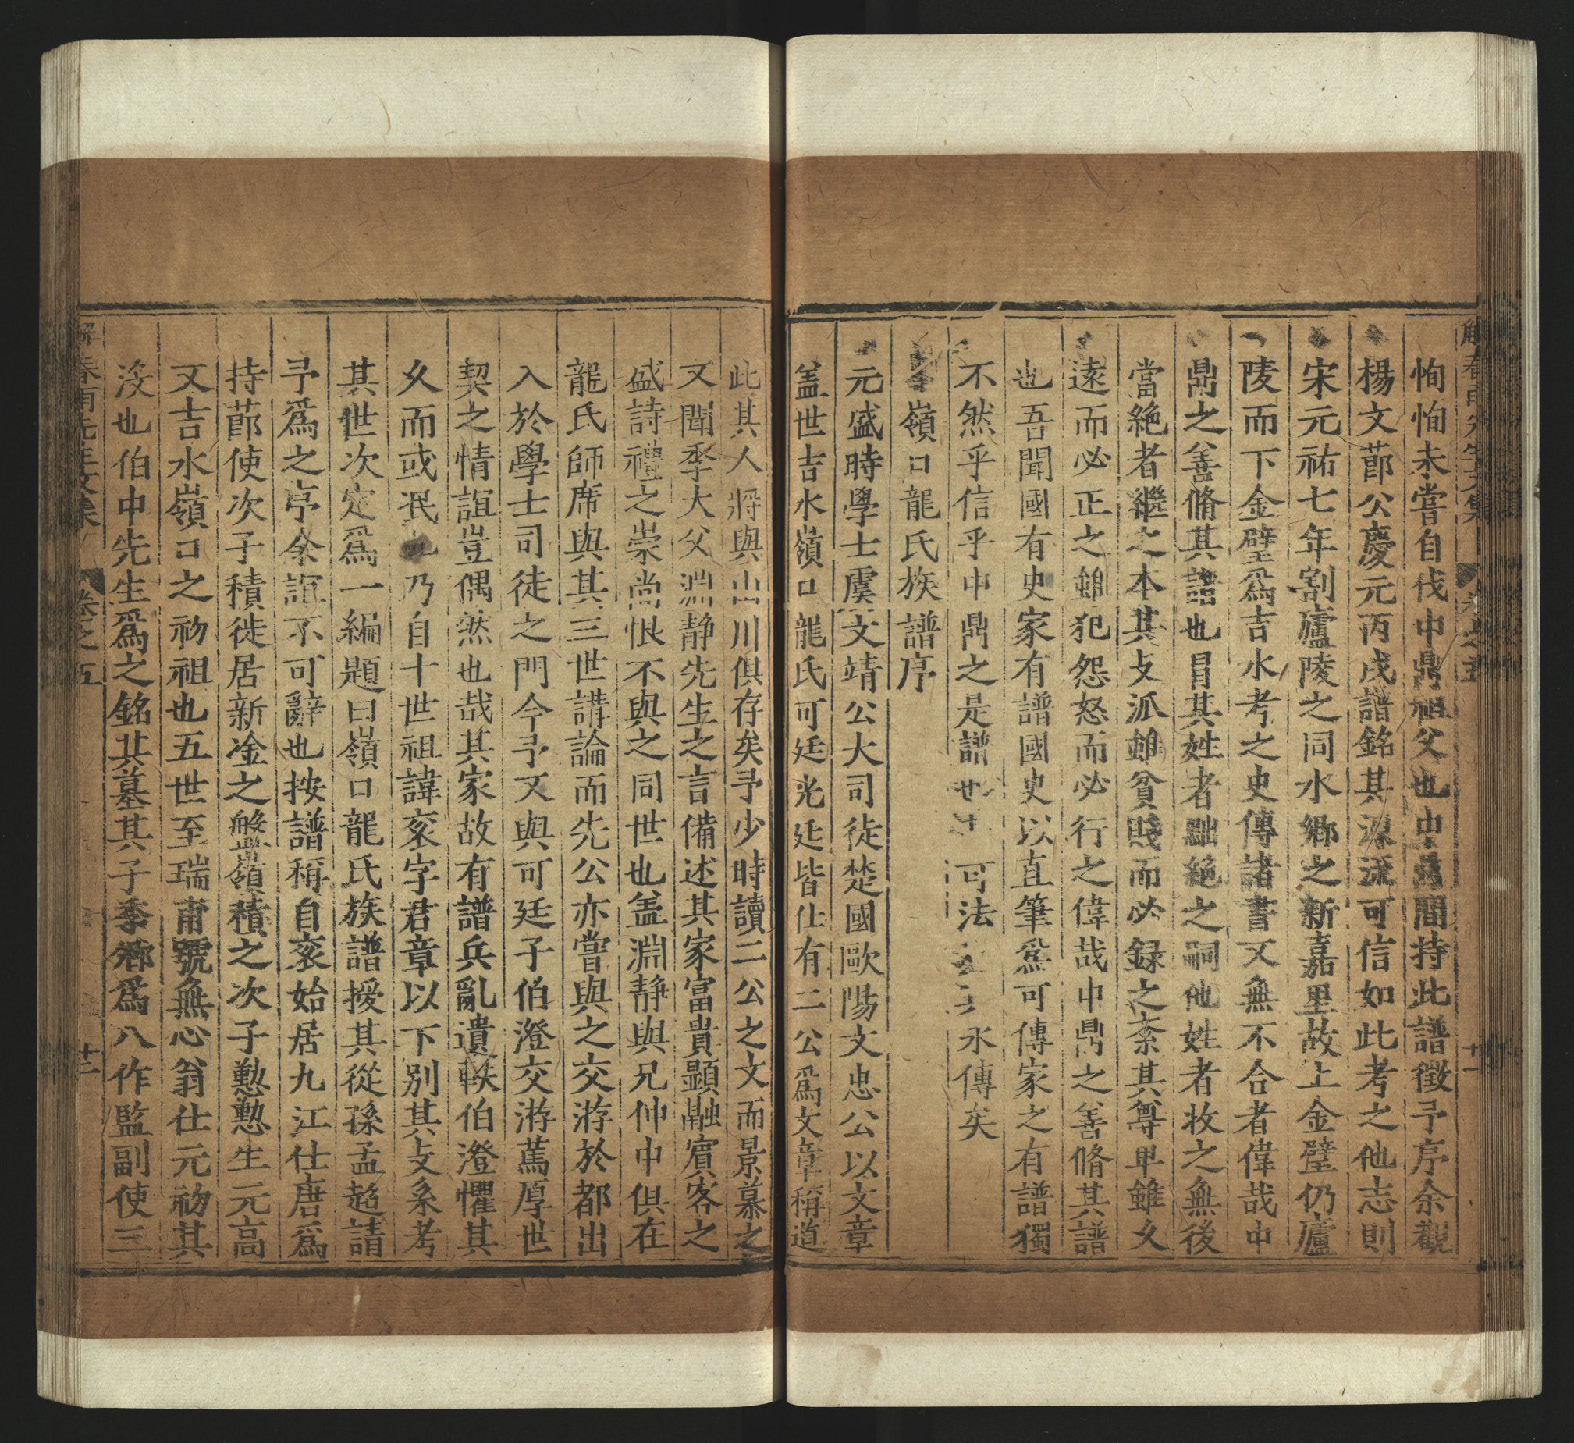 恂恂未嘗自伐中鼎祖父也中鼎間持此譜徵予序余觀
楊文節公慶元丙戌譜銘其源流可信如此考之他志則
宋元祐七年割廬陵之同水鄉之新嘉里故上金壁仍廬
陵而下金壁爲吉水考之史傳諸書又無不合者偉哉中
鼎之善脩其譜也冒其姓者黜絕之嗣他姓者收之無後
當絶者繼之本其支派雖貧賤而必録之紊其尊卑雖久
遠而必正之雖犯怨怒而必行之偉哉中鼎之善脩其譜
也吾聞國有史家有譜國史以直筆爲可傳家之有譜獨
不然乎信乎中鼎之是譜也 可法 永傳矣
嶺口龍氏族譜序
元盛時學士虞文靖公大司徒楚國歐陽文忠公以文章
葢世吉水嶺口龍氏可廷光廷皆仕有二公爲文章稱道
此其人將與山川俱存矣予少時讀二公之文而景慕之
又聞季大父淵靜先生之言備述其家富貴顯融賓客之
盛詩禮之崇尚恨不與之同世也葢淵靜與兄仲中俱在
龍氏師席與其三世講論而先公亦嘗與之交游於都出
入於學士司徒之門今予又與可廷子伯澄交游篤厚世
契之情誼豈偶然也哉其家故有譜兵亂遺軼伯澄懼其
久而或泯 乃自十世祖諱衮字君章以下別其支系考
其世次定爲一編題曰嶺口龍氏族譜援其從孫孟趨請
予爲之序余誼不可辭也按譜稱自衮始居九江仕唐爲
持節使次子積徙居新淦之盤嶺積之次子懃懃生元高
又吉水嶺口之初祖也五世至瑞甫號無心翁仕元初其
沒也伯中先生爲之銘其墓其子季鄉爲八作監副使三
解春雨先生文集 卷之五 廿二